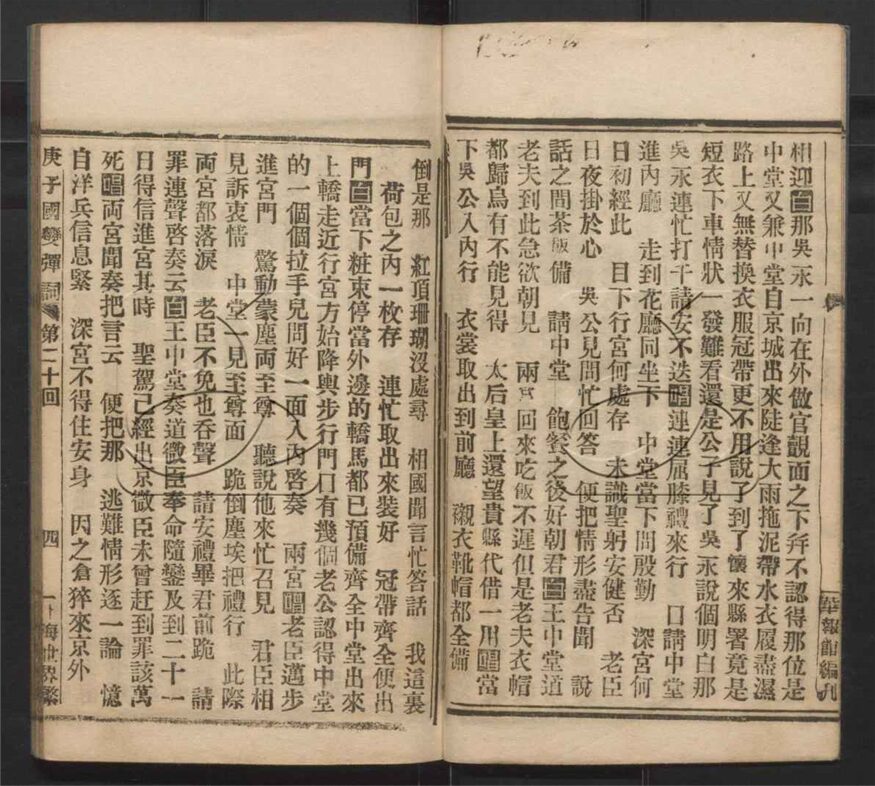 相迎白那吳永一向在外做官覿面之下幷不認得那位是
中堂又兼中堂自京城出來陡逢大雨拖泥帶水衣履盡濕
路上又無替換衣服冠帶更不用說了到了懷來縣署竟是
短衣下車情狀一發難看還是公子見了吳永說個明白那
吳永連忙打千請安不迭唱連連屈膝禮來行　口請中堂
進內廳　走到花廳同坐下　中堂當下問殷勤　深宮何
日初經此　目下行宮何處存　未識聖躬安健否　老臣
日夜掛於心　吳公見問忙回答　便把情形盡告聞　說
話之間茶飯備　請中堂　飽餐之後好朝君白王中堂道
老夫到此急欲朝見　兩宮回來吃飯不遲但是老夫衣帽
都歸烏有不能見得　太后皇上還望貴縣代借一用唱當
下吳公入內行　衣裳取出到前廳　襯衣靴帽都全備
華報館編刊
倒是那　紅頂珊瑚沒處尋　相國聞言忙答話　我這裏
荷包之內一枚存　連忙取出來裝好　冠帶齊全便出
門白當下粧束停當外邊的轎馬都已預備齊全中堂出來
上轎走近行宮方始降輿步行門口有幾個老公認得中堂
的一個個拉手兒問好一面入內啓奏　兩宮唱老臣邁步
進宮門　驚動蒙塵両至尊　聽說他來忙召見　君臣相
見訴衷情　中堂一見至尊面　跪倒塵埃把禮行　此際
両宮都落淚　老臣不免也吞聲　請安禮畢君前跪　請
罪連聲啓奏云白王中堂奏道微臣奉命隨鑾及到二十一
日得信進宮其時　聖駕已經出京微臣未曾赶到罪該萬
死唱両宮聞奏把言云　便把那　逃難情形逐一論　憶
自洋兵信息緊　深宮不得住安身　因之倉猝來京外
庚子國變彈詞　第二十回　四　上海世界繁